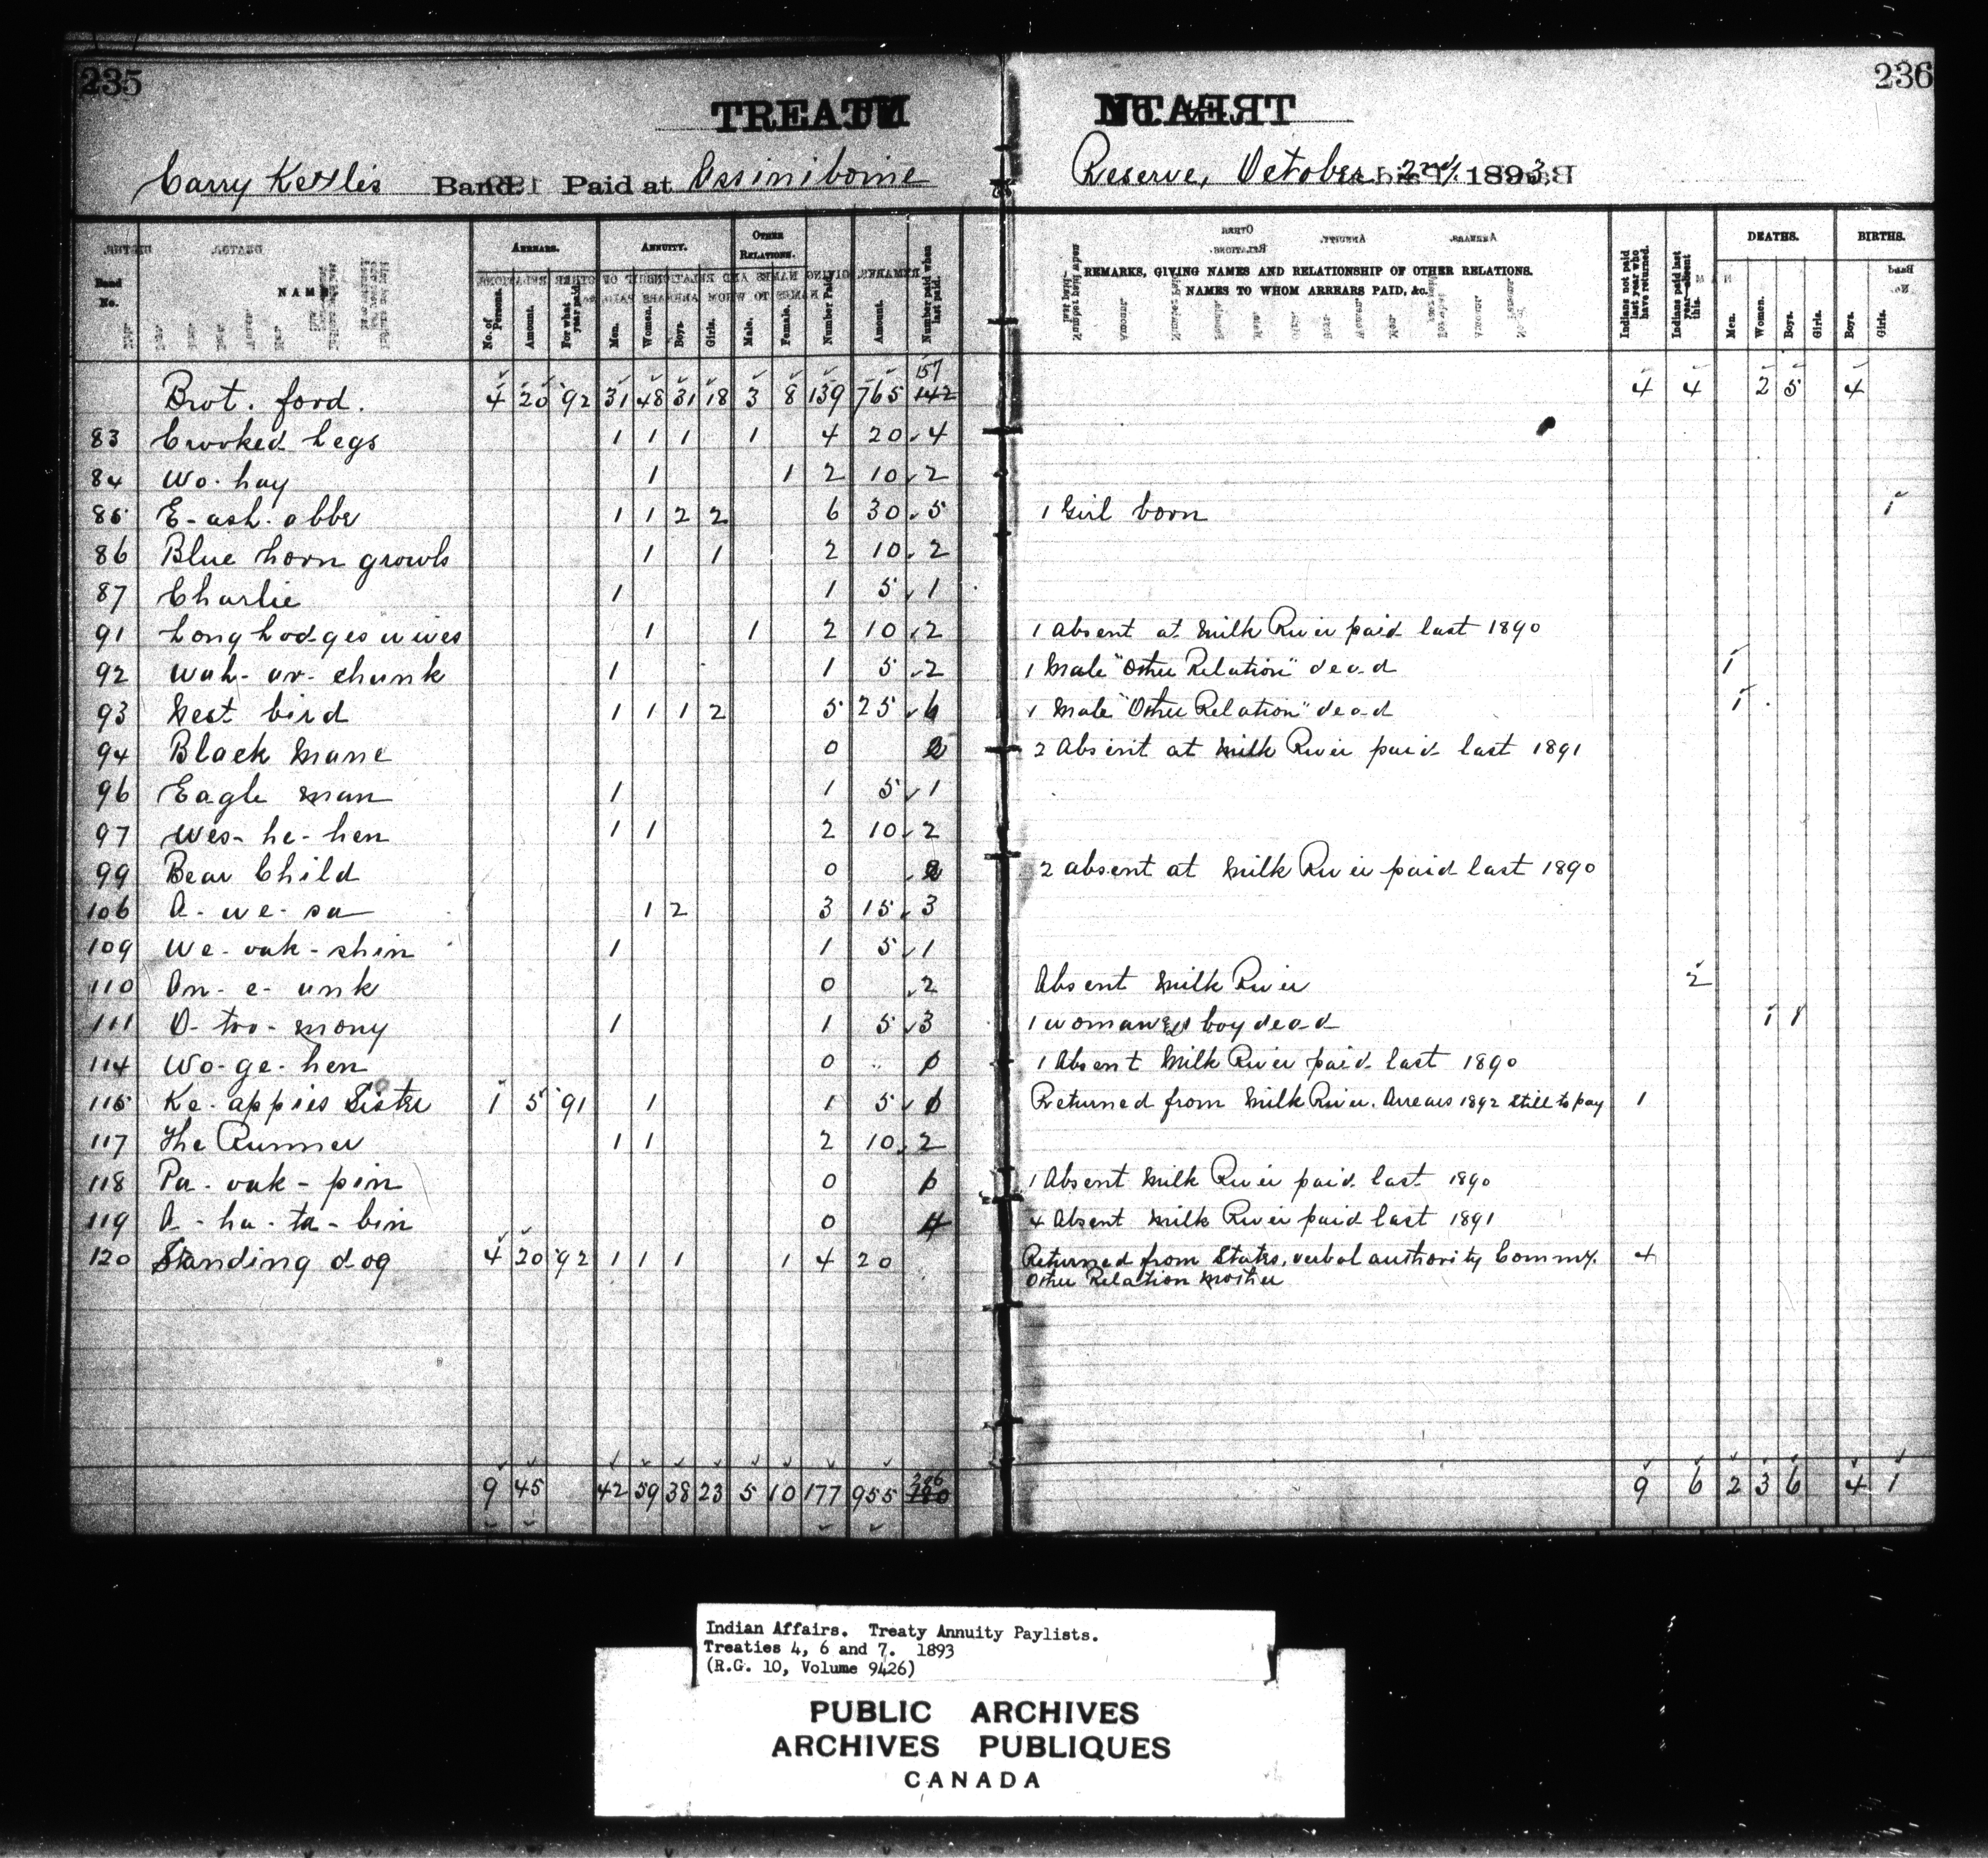 235
236
TREATY No.
Carry Kettles Band Paid at Assiniboine Reserve, October 2nd, 1893
Band No. NAME ARREARS. No. of Persons. Amount. For what year paid. ANNUITY. Men. Women. Boys. Girls. OTHER RELATIONS. Male. Female. Number Paid. Amount. Number paid when last paid. REMARKS, GIVING NAMES AND RELATIONSHIP OF OTHER RELATIONS. NAMES TO WHOM ARREARS PAID, &c. Indians not paid last year who have returned. Indians paid last year absent this. DEATHS. Men. Women. Boys. Girls. BIRTHS. Boys. Girls.
Brot. ford. 4 20 '92 31 48 31 18 3 8 139 765 157 142 4 4 2 5 4
83 Crooked Legs 1 1 1 1 4 20 4
84 Wo. hay 1 1 2 10 2
85 E-ash. abbe 1 1 2 2 6 30 5 1 Girl born 1
86 Blue horn growls 1 1 2 10 2
87 Charlie 1 1 5 1
91 Long Lodges wives 1 1 2 10 2 1 Absent at Milk River paid last 1890
92 Wah-ar-chunk 1 1 5 2 1 Male "Other Relation" dead 1
93 Nest bird 1 1 1 2 5 25 6 1 Male "Other Relation" dead 1
94 Black Mane 0 2 2 Absent at Milk River paid last 1891
96 Eagle man 1 1 5 1
97 Wes-he-hen 1 1 2 10 2
99 Bear Child 0 2 2 absent at Milk River paid last 1890
106 A-we-sa 1 2 3 15 3
109 We-oak-shin 1 1 5 1
110 An-e-unk 0 2 Absent Milk River 2
111 O-too-mony 1 1 5 3 1 woman & 1 boy dead 1 1
114 Wo-ge-hen 0 1 1 Absent Milk River paid last 1890
115 Ke-appies Sister 1 5 '91 1 1 5 1 Returned from Milk River. Arrears 1892 still to pay 1
117 The Runner 1 1 2 10 2
118 Pa-oak-pin 0 1 1 Absent Milk River paid last 1890
119 A-ha-ta-bin 0 4 4 Absent Milk River paid last 1891
120 Standing dog 4 20 '92 1 1 1 1 4 20 Returned from States, verbal authority Commr. 4
Other Relation Mother
9 45 42 59 38 23 5 10 177 955 206 180 9 6 2 3 6 4 1
Indian Affairs. Treaty Annuity Paylists.
Treaties 4, 6 and 7. 1893
(R.G. 10, Volume 9426)
PUBLIC ARCHIVES
ARCHIVES PUBLIQUES
CANADA